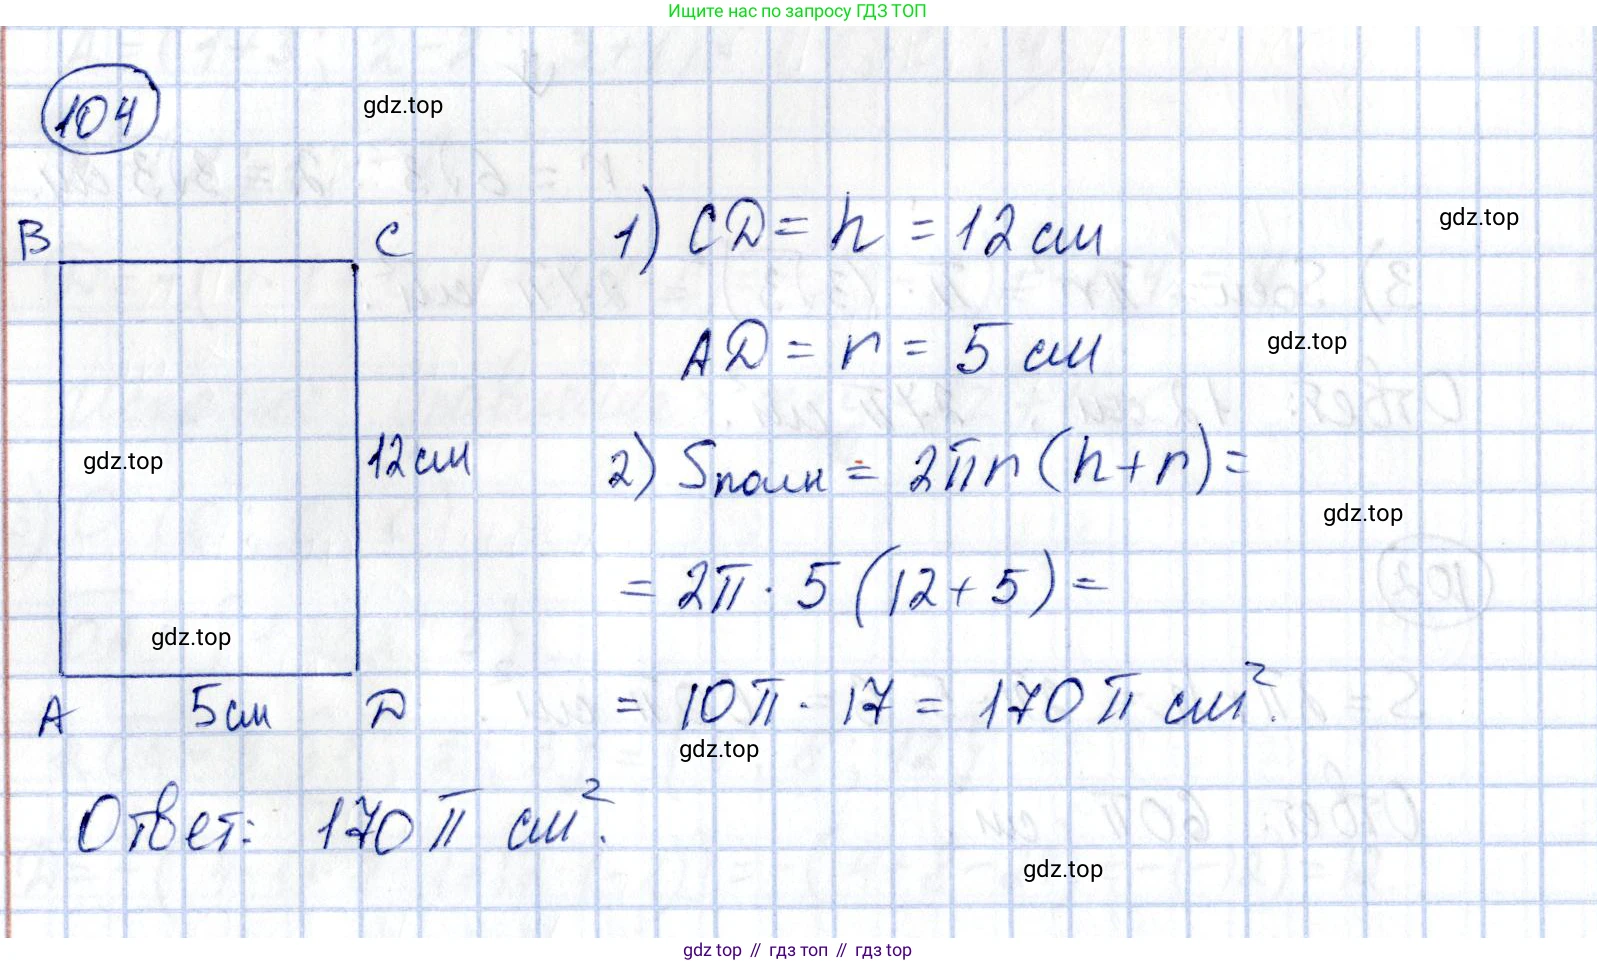 Ищите нас по запросу ГДЗ ТОП
104
gdz.top
B C
1) CD = h = 12 см
gdz.top
AD = r = 5 см
gdz.top
gdz.top
12 см
2) Sполн = 2πr (h + r) =
gdz.top
= 2π · 5 (12 + 5) =
gdz.top
A 5 см D
= 10π · 17 = 170π см².
gdz.top
Ответ: 170π см².
gdz.top
gdz top // гдз топ // гдз top